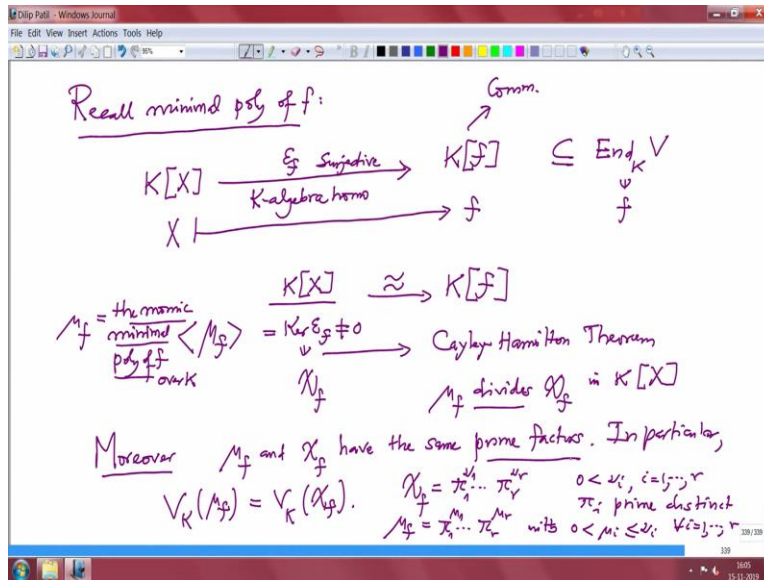 Dilip Patil - Windows Journal
File Edit View Insert Actions Tools Help
Recall minimal poly of f:
Comm.
K[X] ε_f Surjective K[f] ⊆ End_K V
K-algebra homo
X ↦ f f
K[X] ≈ K[f]
μ_f = the monic minimal poly of f over K
<μ_f> = Ker ε_f ≠ 0
→ Cayley-Hamilton Theorem
χ_f
μ_f divides χ_f in K[X]
Moreover μ_f and χ_f have the same prime factors. In particular,
V_K(μ_f) = V_K(χ_f). χ_f = π_1^{ν_1} ... π_r^{ν_r} 0 < ν_i, i=1,...,r
π_i prime distinct
μ_f = π_1^{μ_1} ... π_r^{μ_r} with 0 < μ_i ≤ ν_i ∀ i=1,...,r
339/339
339
16:05
15-11-2019